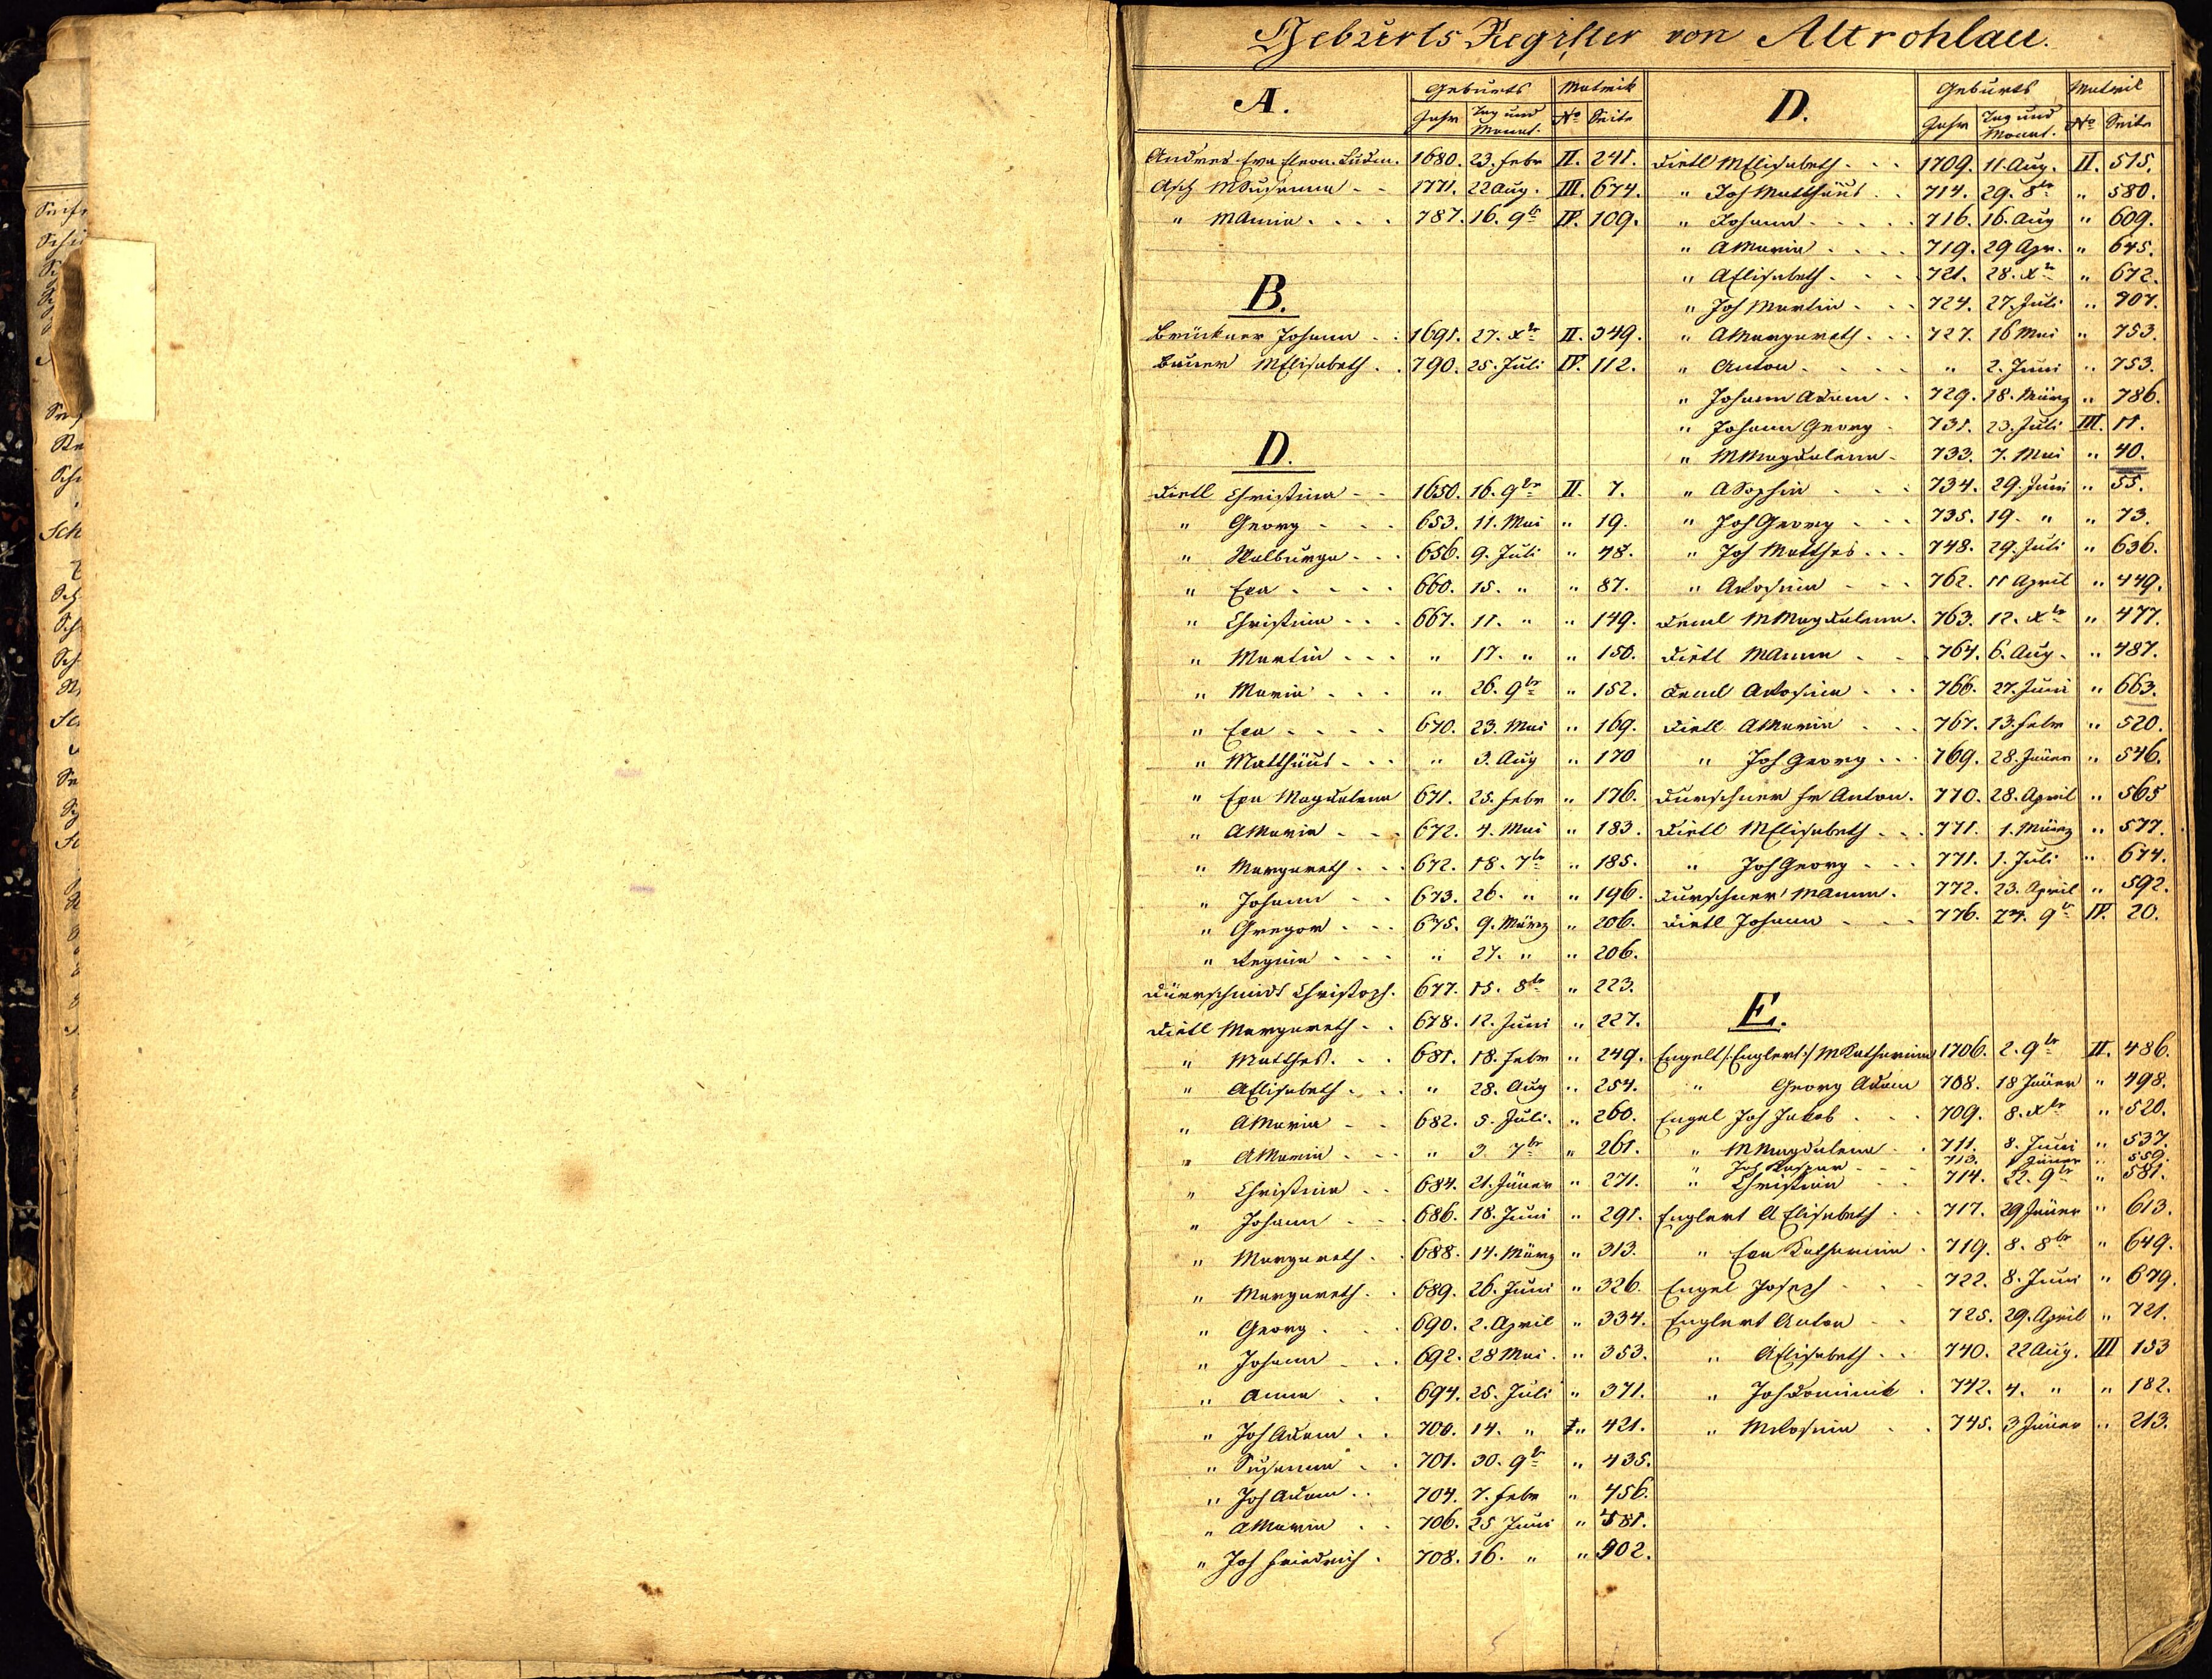 Geburts Register von Altrohlau.
A. Geburts Matrik
Jahr Tag und Monat. No Seite
Andres Eva Eleon. Ludm. 1680. 23. Febr II. 241.
Asch MSusanna - - 1771. 22 Aug. III. 674.
" MAnna . . . . 787. 16. 9br IV. 109.
B.
Brückner Johann . . 1691. 27. Xbr II. 349.
Bauer MElisabeth . . 790. 25. Juli IV. 112.
D.
Dietl Christina - - 1650. 16. 9br II. 7.
" Georg - - - 653. 11. Mai " 19.
" Walburga - - . 656. 9. Juli " 48.
" Eva . - - . 660. 15. " " 87.
" Christina . . . 667. 11. " " 149.
" Martin . . . " 17. " " 150.
" Maria . . . " 26. 9br " 152.
" Eva - - - . 670. 23. Mai " 169.
" Matthäus - . . " 3. Aug " 170
" Eva Magdalena 671. 25. Febr " 176.
" AMaria . - . 672. 4. Mai " 183.
" Margareth . . . 672. 18. 7br " 185.
" Johann . . 673. 26. " " 196.
" Gregor . . . 675. 9. März " 206.
" Regina . . . " 27. " " 206.
Dürrschmidt Christoph. 677. 15. 8br " 223.
Dietl Margareth . . 678. 12. Juni " 227.
" Matthes. . . 681. 18. Febr " 249.
" AElisabeth . . . " 28. Aug " 254.
" AMaria - . 682. 5. Juli. " 260.
" AMaria . . . " 3 7br " 261.
" Christina . . 684. 21. Jäner " 271.
" Johann . . . 686. 18. Juni " 291.
" Margareth . . 688. 14. März " 313.
" Margareth . . 689. 26. Juni " 326.
" Georg . . . 690. 2. April " 334.
" Johann . . . 692. 28 Mai . " 353.
" Anna . . 694. 25. Juli " 371.
" Joh Adam . . 700. 14. " " 421.
" Susanna . . 701. 30. 9br " 435.
" Joh Adam . . 704. 7. Febr " 456.
" AMaria . . 706. 25 Juni " 481.
" Joh Friedrich . 708. 16. " " 502.
D. Geburts Matrik
Jahr Tag und Monat. No Seite
Dietl MElisabeth . - - 1709. 11. Aug. II. 515.
" Joh Matthäus . . 714. 29. 8br " 580.
" Johann . . . . 716. 16. Aug " 609.
" AMaria . . . . 719. 29 Apr. " 645.
" AElisabeth . . . 721. 28. Xbr " 672.
" Joh Martin . . . 724. 27. Juli " 707.
" AMargareth . . . 727. 16 Mai " 753.
" Anton . . . . " 2. Juni " 753.
" Johann Adam . . 729. 18. März " 786.
" Johann Georg . 731. 23. Juli III. 11.
" MMagdalena - 733. 7. Mai " 40.
" ASophia . - - 734. 29. Juni " 55.
" Joh Georg . . . 735. 19. " " 73.
" Joh Matthes . . . 748. 29. Juli " 636.
" ARosina - - - 762. 11 April " 449.
Deml MMagdalena. 763. 12. Xbr " 477.
Dietl MAnna . . 764. 6. Aug. " 487.
Deml ARosina . . . 766. 27. Juni " 663.
Dietl AMaria . . . 767. 13. Febr " 520.
" Joh Georg . . . 769. 28. Jäner " 546.
Durschner Fr Anton. 770. 28. April " 565
Dietl MElisabeth . . . 771. 1. März " 577.
" Joh Georg . . . 771. 1. Juli " 674.
Durschner MAnna. 772. 23. April " 592.
Dietl Johann . . . 776. 24. 9br IV. 20.
E.
Engelt /:Englert:/ MKatharina 1706. 2. 9br II. 486.
" Georg Adam 708. 18 Jäner " 498.
Engel Joh Jakob . . . 709. 8. Xbr " 520.
" MMagdalena . . 711. 8. Juni " 537.
" Joh Kaspar - - - 713. Jäner " 559.
" Christina . . 714. 22. 9br " 581.
Englert A Elisabeth . . 717. 29 Jäner " 613.
" Eva Katharina . 719. 8. 8br " 649.
Engel Joseph . . . 722. 8. Juni " 679.
Englert Anton . . 725. 29. April " 721.
" AElisabeth . . 740. 22 Aug. III 153
" Joh Dominik . 742. 4. " " 182.
" MRosina . . 745. 3 Jäner " 213.